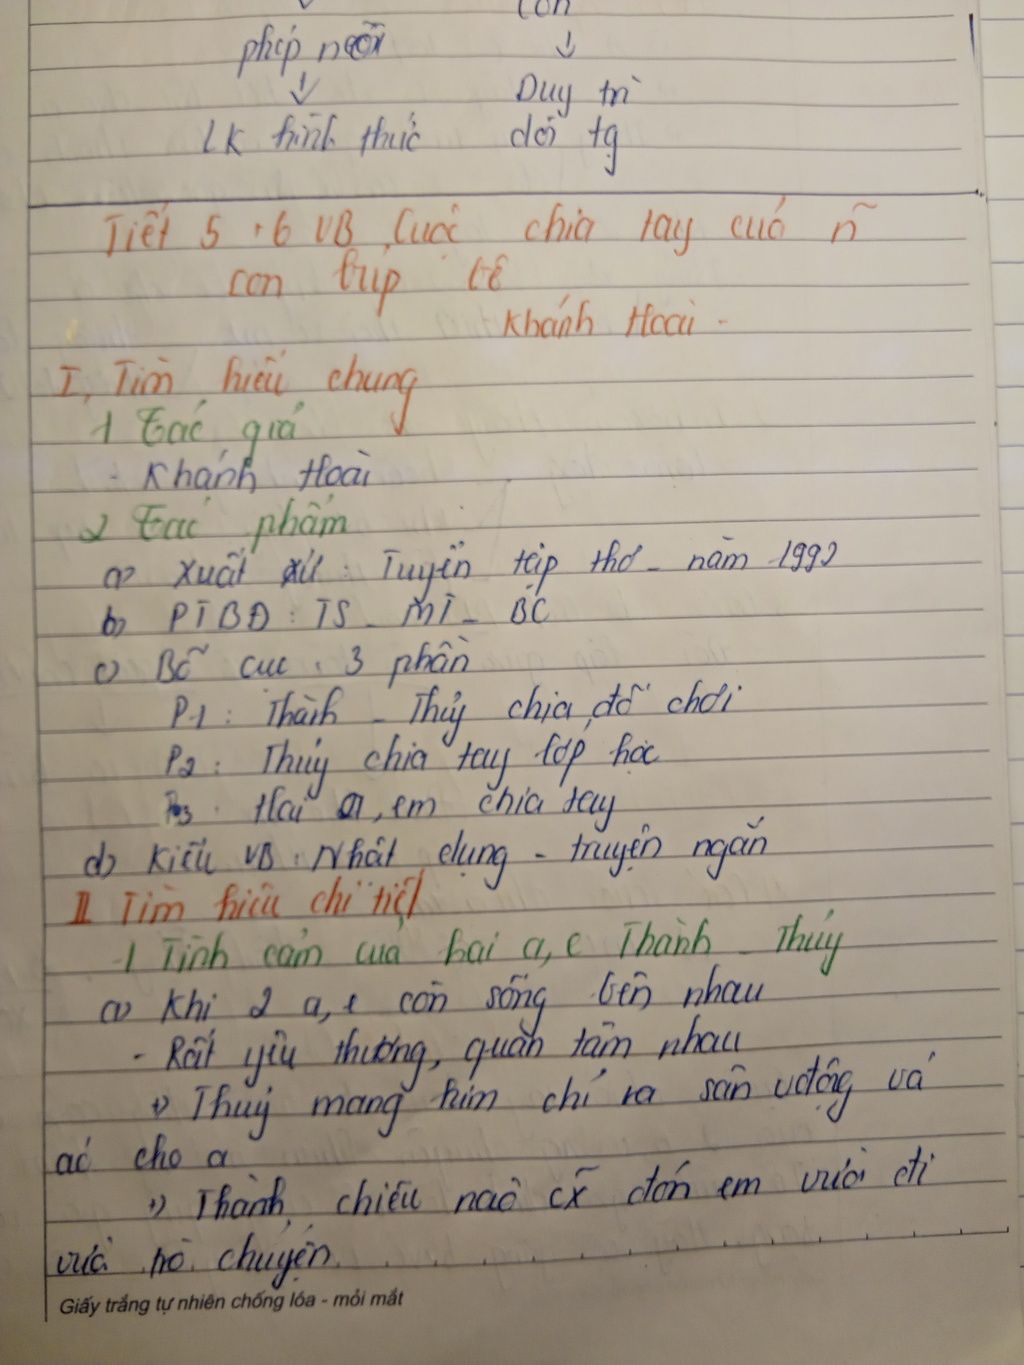 con
phép nối
↓ ↓
Duy trì
LK hình thức đối tg
Tiết 5+6 VB Cuộc chia tay của ~
con búp bê
Khánh Hoài -
I, Tìm hiểu chung
1 Tác giả
- Khánh Hoài
2 Tác phẩm
a) Xuất xứ: Tuyển tập thơ - năm 1992
b) PTBĐ: TS - MT - BC
c) Bố cục: 3 phần
P1: Thành - Thủy chia đồ chơi
P2: Thủy chia tay lớp học
P3: Hai a, em chia tay
d) Kiểu VB: Nhật dụng - truyện ngắn
II Tìm hiểu chi tiết
1 Tình cảm của hai a, e Thành - Thủy
a) Khi 2 a, e còn sống bên nhau
- Rất yêu thương, quan tâm nhau
+) Thuỷ mang kim chỉ ra sân vđộng vá
áo cho a
+) Thành, chiều nào cx đón em vừa đi
vừa trò chuyện
Giấy trắng tự nhiên chống lóa - mỏi mắt